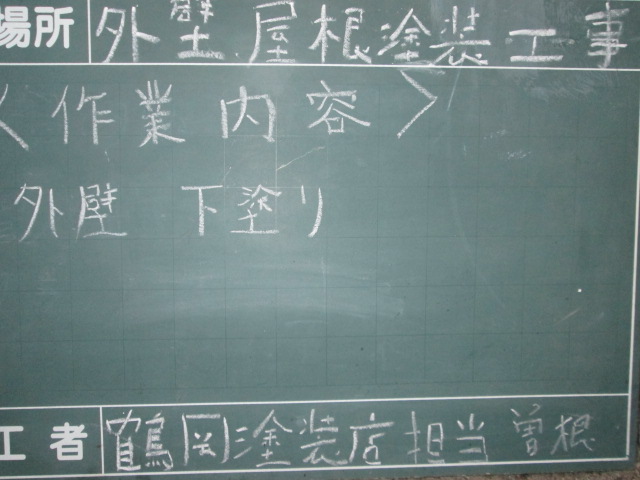 場所 外壁 屋根塗装工事
<作業内容>
外壁 下塗り
工者 鶴岡塗装店 担当 曽根